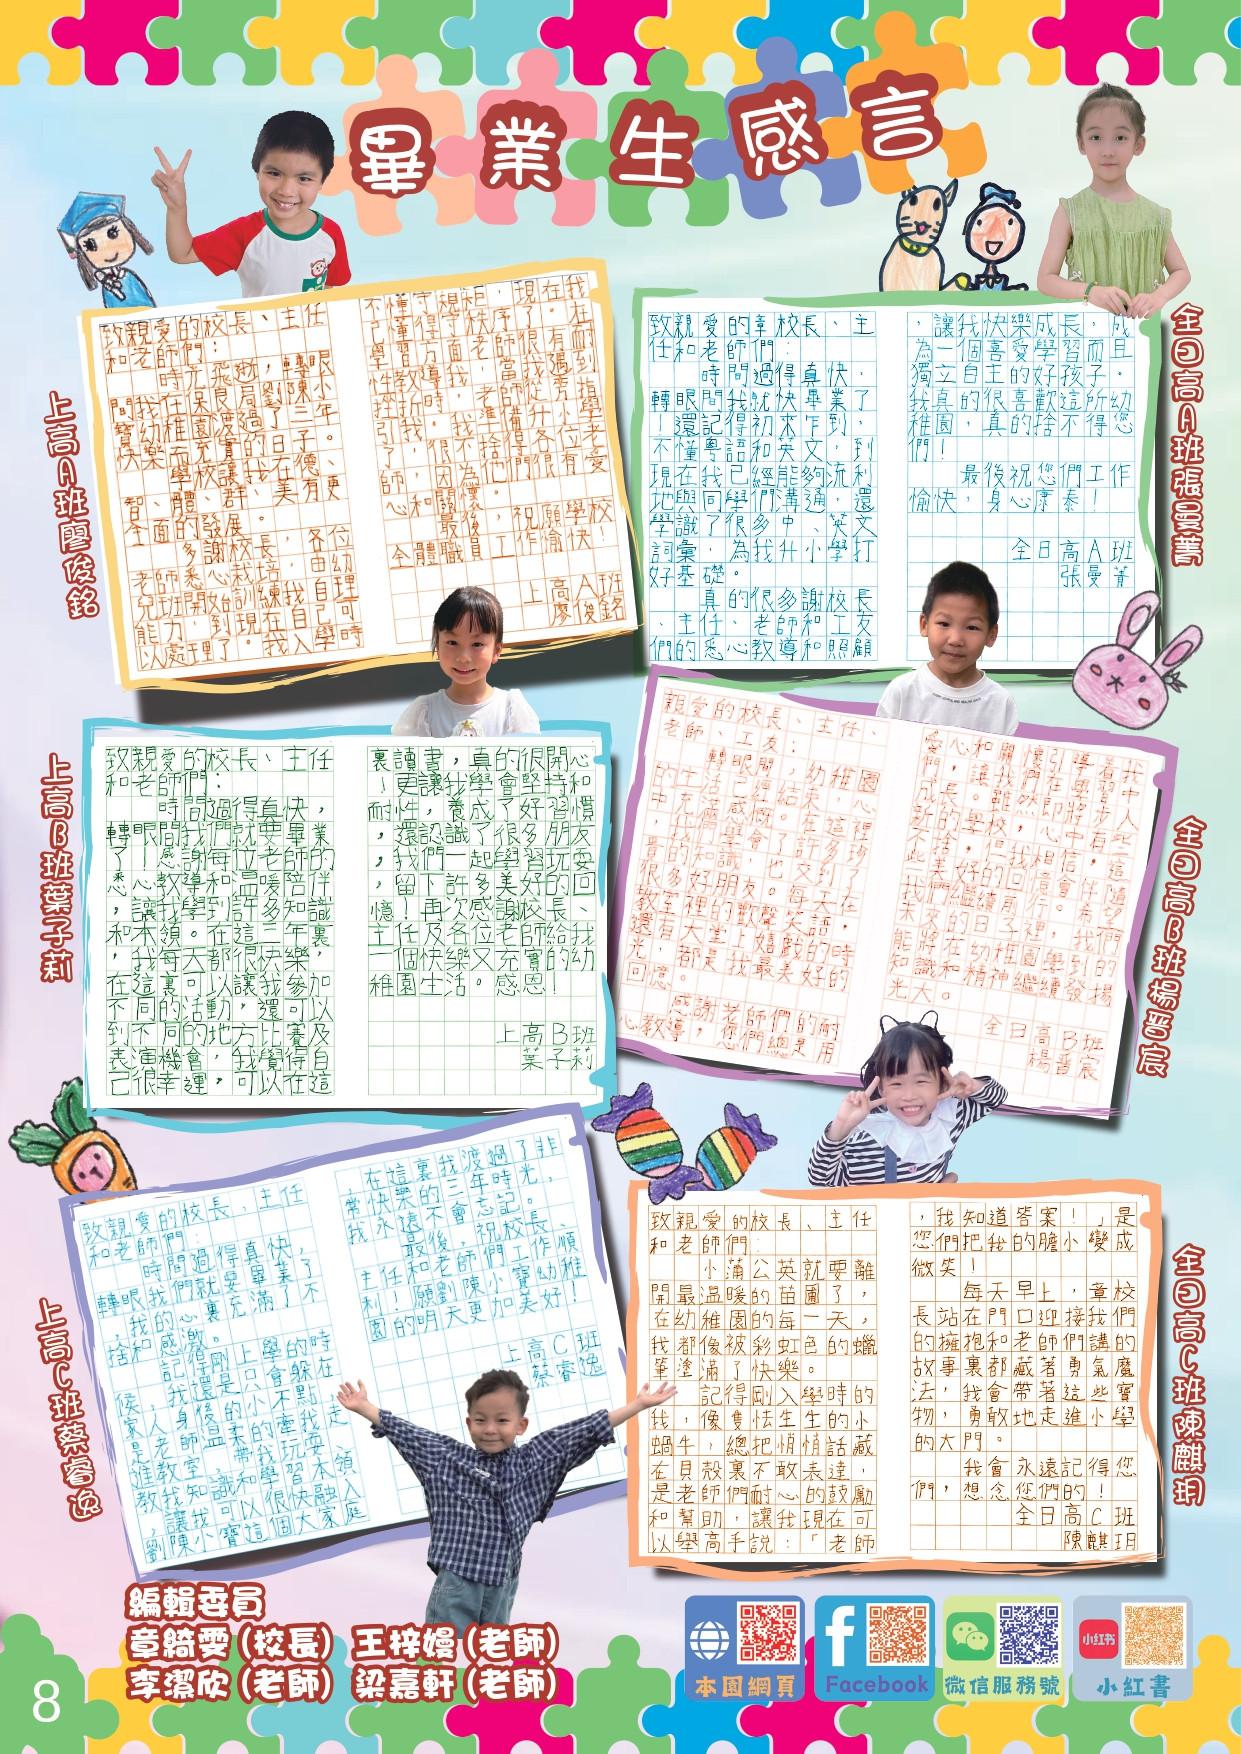 畢業生感言
上高A班廖俊銘
致親愛的校長、主任
和老師們：
時光飛逝，轉眼
間我在保良局劉陳小
寶幼稚園渡過了三年
快樂而充實的日子。
學校讓我在德、
智、體、群、美有更
全面的發展。
多謝校長，各位
老師悉心栽培，由幼
兒班開始訓練我自理
能力，到現在自己可
以處理了。我入學時
不懂守規矩，現在我
已懂得守秩序了。在
學習方面，老師很有耐
性教導我，當我遇到
挫折時，老師從旁指
引我，準備升各位學
了，很不捨得各位老
師，因為他們很有愛
心和關懷。
最後，祝願學校
全體職員工作愉快！
上高A班
廖俊銘
全日高A班張曼菁
致親愛的章校長、主
任和老師們：
時間過得真快，
轉眼間我就快畢業了
！還記得初來乍到，
不懂粵語和英文，到
現在我已經能夠流利
地與同學們溝通，還
學識了很多中、英文
詞彙，為我升小學打
好基礎。
真的很多謝校長
、主任、老師和工友
們的悉心教導和照顧
，讓我快樂成長，成
為一個喜愛學習而且
獨立自主的好孩子。
我真的很喜歡這所幼
稚園，真的捨不得您
們！
最後祝您們工作
愉快，身心康泰！
全日高A班
張曼菁
上高B班葉子莉
致親愛的校長、主任
和老師們：
時間過得真快，
轉眼間我們就要畢業
了！感謝每位老師的
悉心教導和溫暖陪伴
，讓我學到許多知識
和本領。在這三年裏
，我每天都很快樂，
在這裏可以讓我參加
不同的活動，還可以
到不同的地方比賽及
表演機會，我覺得自
己很幸運，可以在這
裏讀書，真的很開心
！更讓我學會堅持和
耐性，養成了好習慣
，還認識了很多朋友
，我們一起學習玩耍
，留下許多美好的回
憶！再次感謝校長、
主任及各位老師給我
一個快樂又充實的幼
稚園生活。感恩！
上高B班
葉子莉
全日高B班楊晋宸
親愛的校長、主任、
老師、工友：
轉眼間，幼稚園
的生活已經結束，心
中充滿感慨。在這裡
，我不僅學會了許多
寶貴的知識，也交到了
很多好朋友。每天在
教室裡的歡聲笑語，
還有大堂上嬉戲的時
光，都是我最美好的
回憶。
感謝老師們的耐
心教導，您們總是用
愛心和關懷引導着我
們，讓我們在學習中
成長。雖然即將步入
新的學校，心中有些
不捨，但我相信，這
些美好的回憶會伴隨
我們繼續前行。希望
未來的日子裡，我們
能將在幼稚園學到的
知識和精神繼續發揚
光大。
全日高B班
楊晋宸
上高C班蔡睿逸
致親愛的校長，主任
和老師們：
時間過得真快，
轉眼我們就要畢業了
，我的心裏充滿了不
捨和感激。
記得剛上學的時
候，我還是只會躲在
家人身後的小不點，
是老師溫柔的牽我走
進教室，帶我玩耍，
教我知識和學習本領
，讓我可以很快融入
劉陳小寶這個大家庭
在這裏我渡過了非
常快樂的三年時光，
我永遠不會忘記。
最後，祝校長、
主任和老師們工作順
利！願劉陳小寶幼稚
園的明天更加美好！
上高C班
蔡睿逸
全日高C班陳麒玥
致親愛的校長、主任
和老師們：
小蒲公英就要離
開最溫暖的苗圃了，
在幼稚園的每一天，
我都像被彩虹色的蠟
筆塗滿了快樂。
記得剛入學時的
我，像隻怯生生的小
蝸牛，總把悄悄話藏
在貝殼裏不敢表達，
是老師們耐心的鼓勵
和幫助，讓我現在可
以舉高手說：「老師
，我知道答案！」是
您們把我的膽小變成
微笑！
每天早上，章校
長站在門口迎接我們
的擁抱和老師們講的
故事裏都藏著勇氣魔
法，我會帶著這些寶
物，勇敢地走進小學
的大門。
我會永遠記得您
們，想念您們的！
全日高C班
陳麒玥
編輯委員
章綺雯（校長） 王梓嫚（老師）
李潔欣（老師） 梁嘉軒（老師）
本園網頁
Facebook
微信服務號
小红书
小紅書
8